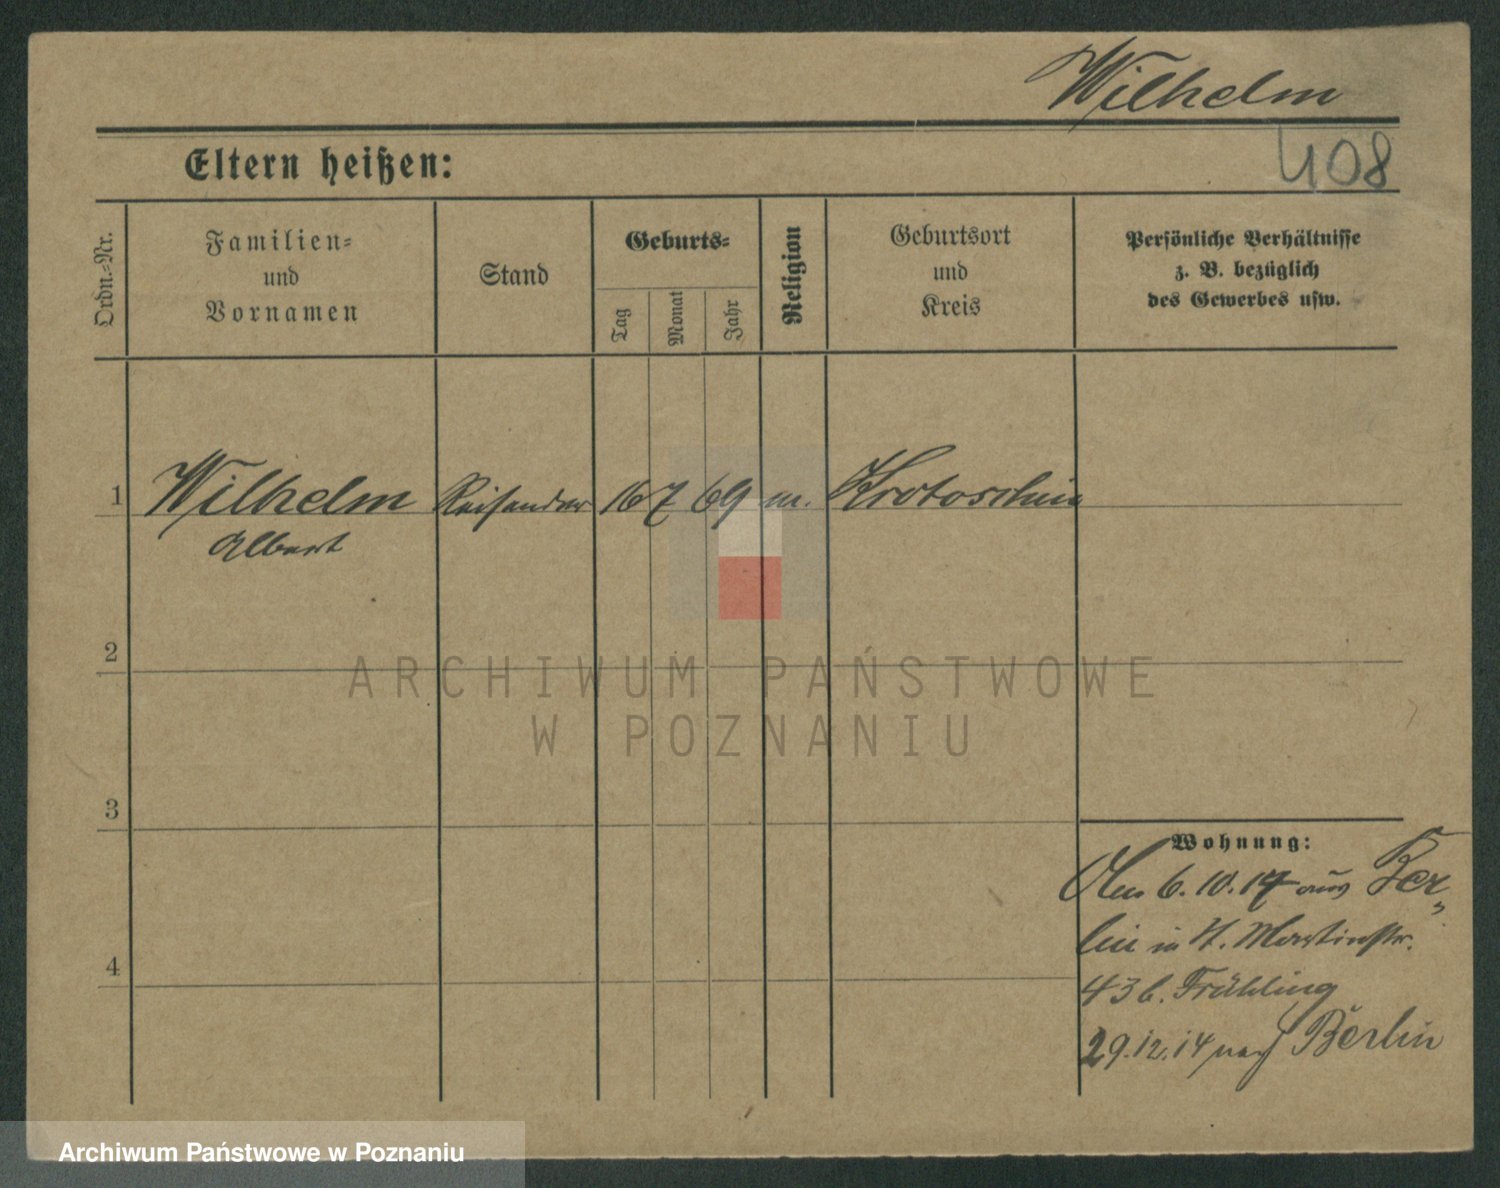 Wilhelm
408
Eltern heißen:
Ordn.=Nr.
Familien=
und
Vornamen
Stand
Geburts=
Tag
Monat
Jahr
Religion
Geburtsort
und
Kreis
Persönliche Verhältnisse
z. B. bezüglich
des Gewerbes usw.
1 Wilhelm Reisender 16 7 69 m. Krotoschin
Albert
2
3
4
Wohnung:
6.10.14 aus Ber=
lin in St. Martinstr.
43 b. Frühling
29.12.14 nach Berlin
ARCHIWUM PAŃSTWOWE
W POZNANIU
Archiwum Państwowe w Poznaniu